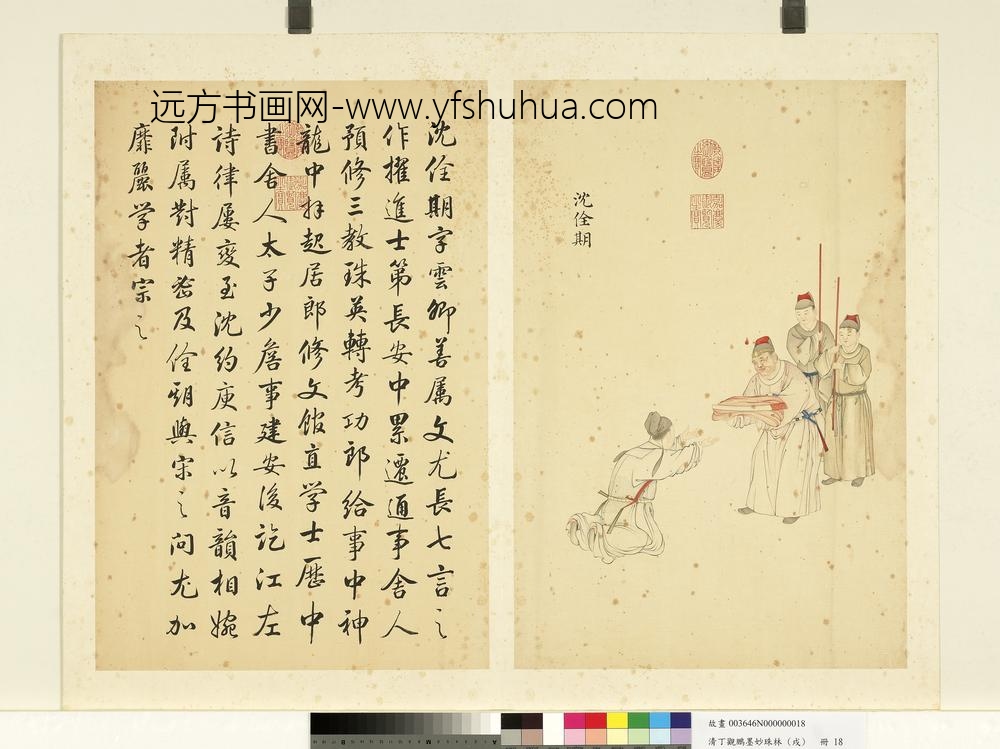 远方书画网-www.yfshuhua.com
沈佺期
嘉慶御覽之寶
沈佺期字雲卿善属文尤長七言之
作擢進士第長安中累遷通事舍人
預修三教珠英轉考功郎給事中神
龍中拜起居郎修文館直学士歷中
書舍人太子少詹事建安後訖江左
詩律屡變至沈約庾信以音韻相婉
附属對精密及佺期與宋之問尤加
靡麗学者宗之
故畫 003646N000000018
清丁觀鵬墨妙珠林（戌） 冊 18